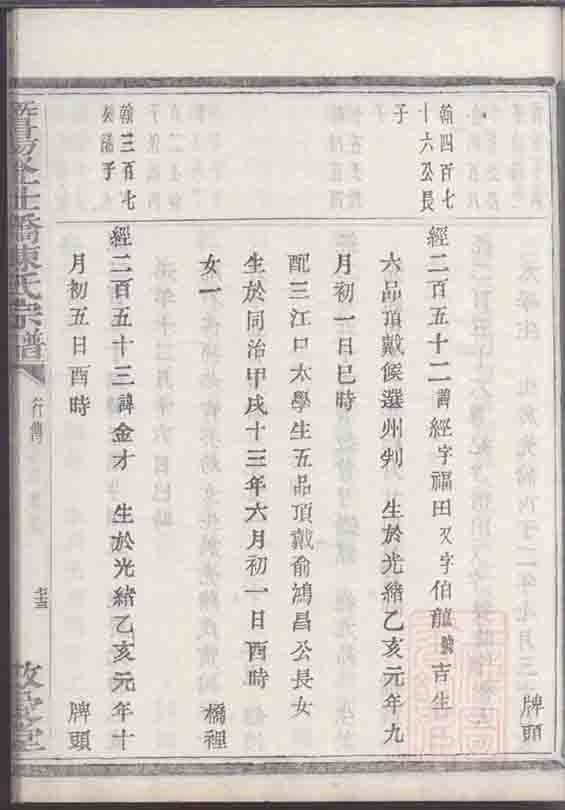 牌頭
翰四百七
十六公長
子
經二百五十二諱經字福田又字伯龍號吉生
六品頂戴候選州判　生於光緒乙亥元年九
月初一日巳時
配三江口太學生五品頂戴俞鴻昌公長女
生於同治甲戌十三年六月初一日酉時
女一　橋裡
翰三百七
子
經二百五十三諱金才　生於光緒乙亥元年十
月初五日酉時　牌頭
暨陽
橋陳氏宗譜
行傳